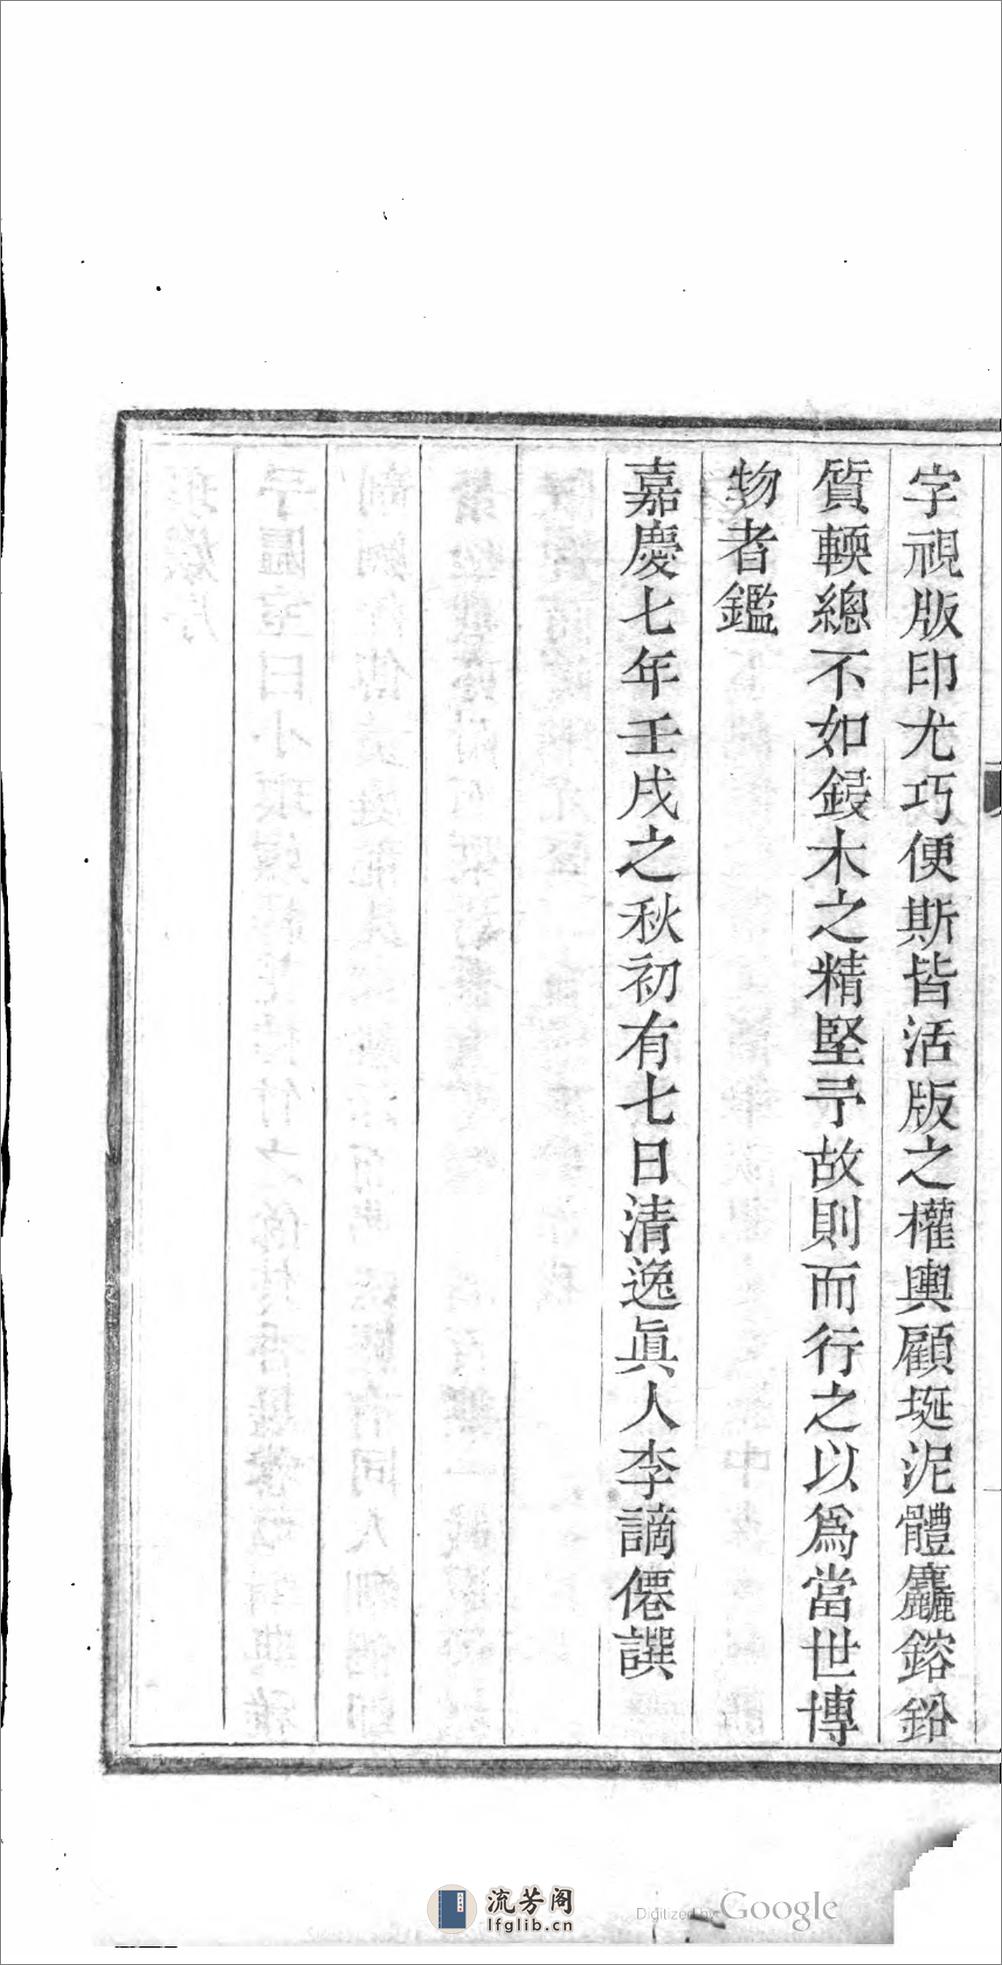 字視版印尤巧便斯皆活版之權輿顧埏泥體麤鎔鉛
質輭總不如鋟木之精堅予故則而行之以爲當世博
物者鑑
嘉慶七年壬戌之秋初有七日清逸眞人李謫僊譔
流芳阁
lfglib.cn
Digitized by Google